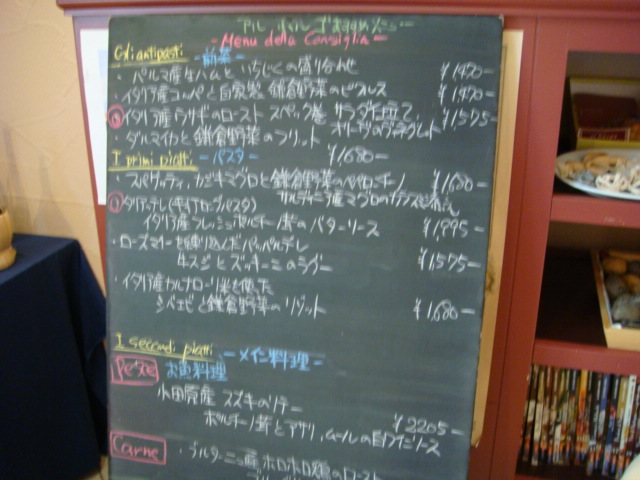 アル ボルゴおすすめメニュー
- Menu della Consiglia -
Gli antipasti - 前菜 -
・パルマ産生ハムと いちじくの盛り合わせ ¥1,470-
・イタリア産コッパと自家製 鎌倉野菜のピクルス ¥1,470-
イタリア産ウサギのロースト スペック巻 サラダ仕立て ¥1,575-
オリーブの
ダルマイカと鎌倉野菜のフリット ¥1,680-
I primi piatti - パスタ -
スパゲッティ、カジキマグロと鎌倉野菜のペペロンチーノ ¥1,680-
タリアテッレ(手打ロングパスタ)
イタリア産フレッシュポルチーニ茸の バターソース ¥1,995-
・ローズマリーを練り込んだパッパルデレ
牛スジとズッキーニのラグー ¥1,575-
・イタリア産カルナローリ米を使った
シバエビと鎌倉野菜の リゾット ¥1,680-
I secondi piatti - メイン料理 -
Pesce お魚料理
小田原産 スズキのソテー
ポルチーニ茸とアサリ、ムールの白ワインソース ¥2205-
Carne ・ブルターニュ産 ホロホロ鶏のロースト